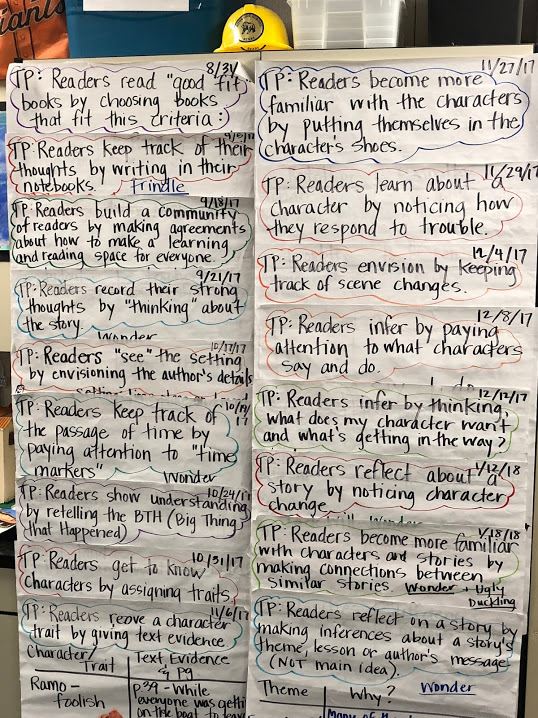 Giants
8/31
TP: Readers read "good fit"
books by choosing books
that fit this criteria:
TP: Readers keep track of their
thoughts by writing in their
notebooks. Frindle
9/18/17
TP: Readers build a community
of readers by making agreements
about how to make a learning
and reading space for everyone.
9/21/17
TP: Readers record their strong
thoughts by "thinking" about
the story.
Wonder
10/17/17
TP: Readers "see" the setting
by envisioning the author's details
10/19/17
TP: Readers keep track of
the passage of time by
paying attention to "time
markers"
Wonder
10/24/17
TP: Readers show understanding
by retelling the BTH (Big Thing
that Happened)
10/31/17
TP: Readers get to know
characters by assigning traits.
11/6/17
TP: Readers prove a character
trait by giving text evidence
Character/
Trait
Text Evidence
& pg
Ramo -
foolish
p.39 - While
everyone was getti
on the boat to leave
11/27/17
TP: Readers become more
familiar with the characters
by putting themselves in the
character's shoes.
11/29/17
TP: Readers learn about a
character by noticing how
they respond to trouble.
12/4/17
TP: Readers envision by keeping
track of scene changes.
12/8/17
TP: Readers infer by paying
attention to what characters
say and do.
12/12/17
TP: Readers infer by thinking,
what does my character want
and what's getting in the way?
1/12/18
TP: Readers reflect about a
story by noticing character
change
Wonder
1/18/18
TP: Readers become more familiar
with characters and stories by
making connections between
similar stories. Wonder + Ugly
Duckling
TP: Readers reflect on a story by
making inferences about a story's
theme, lesson or author's message
(NOT main idea).
Theme
Why?
Wonder